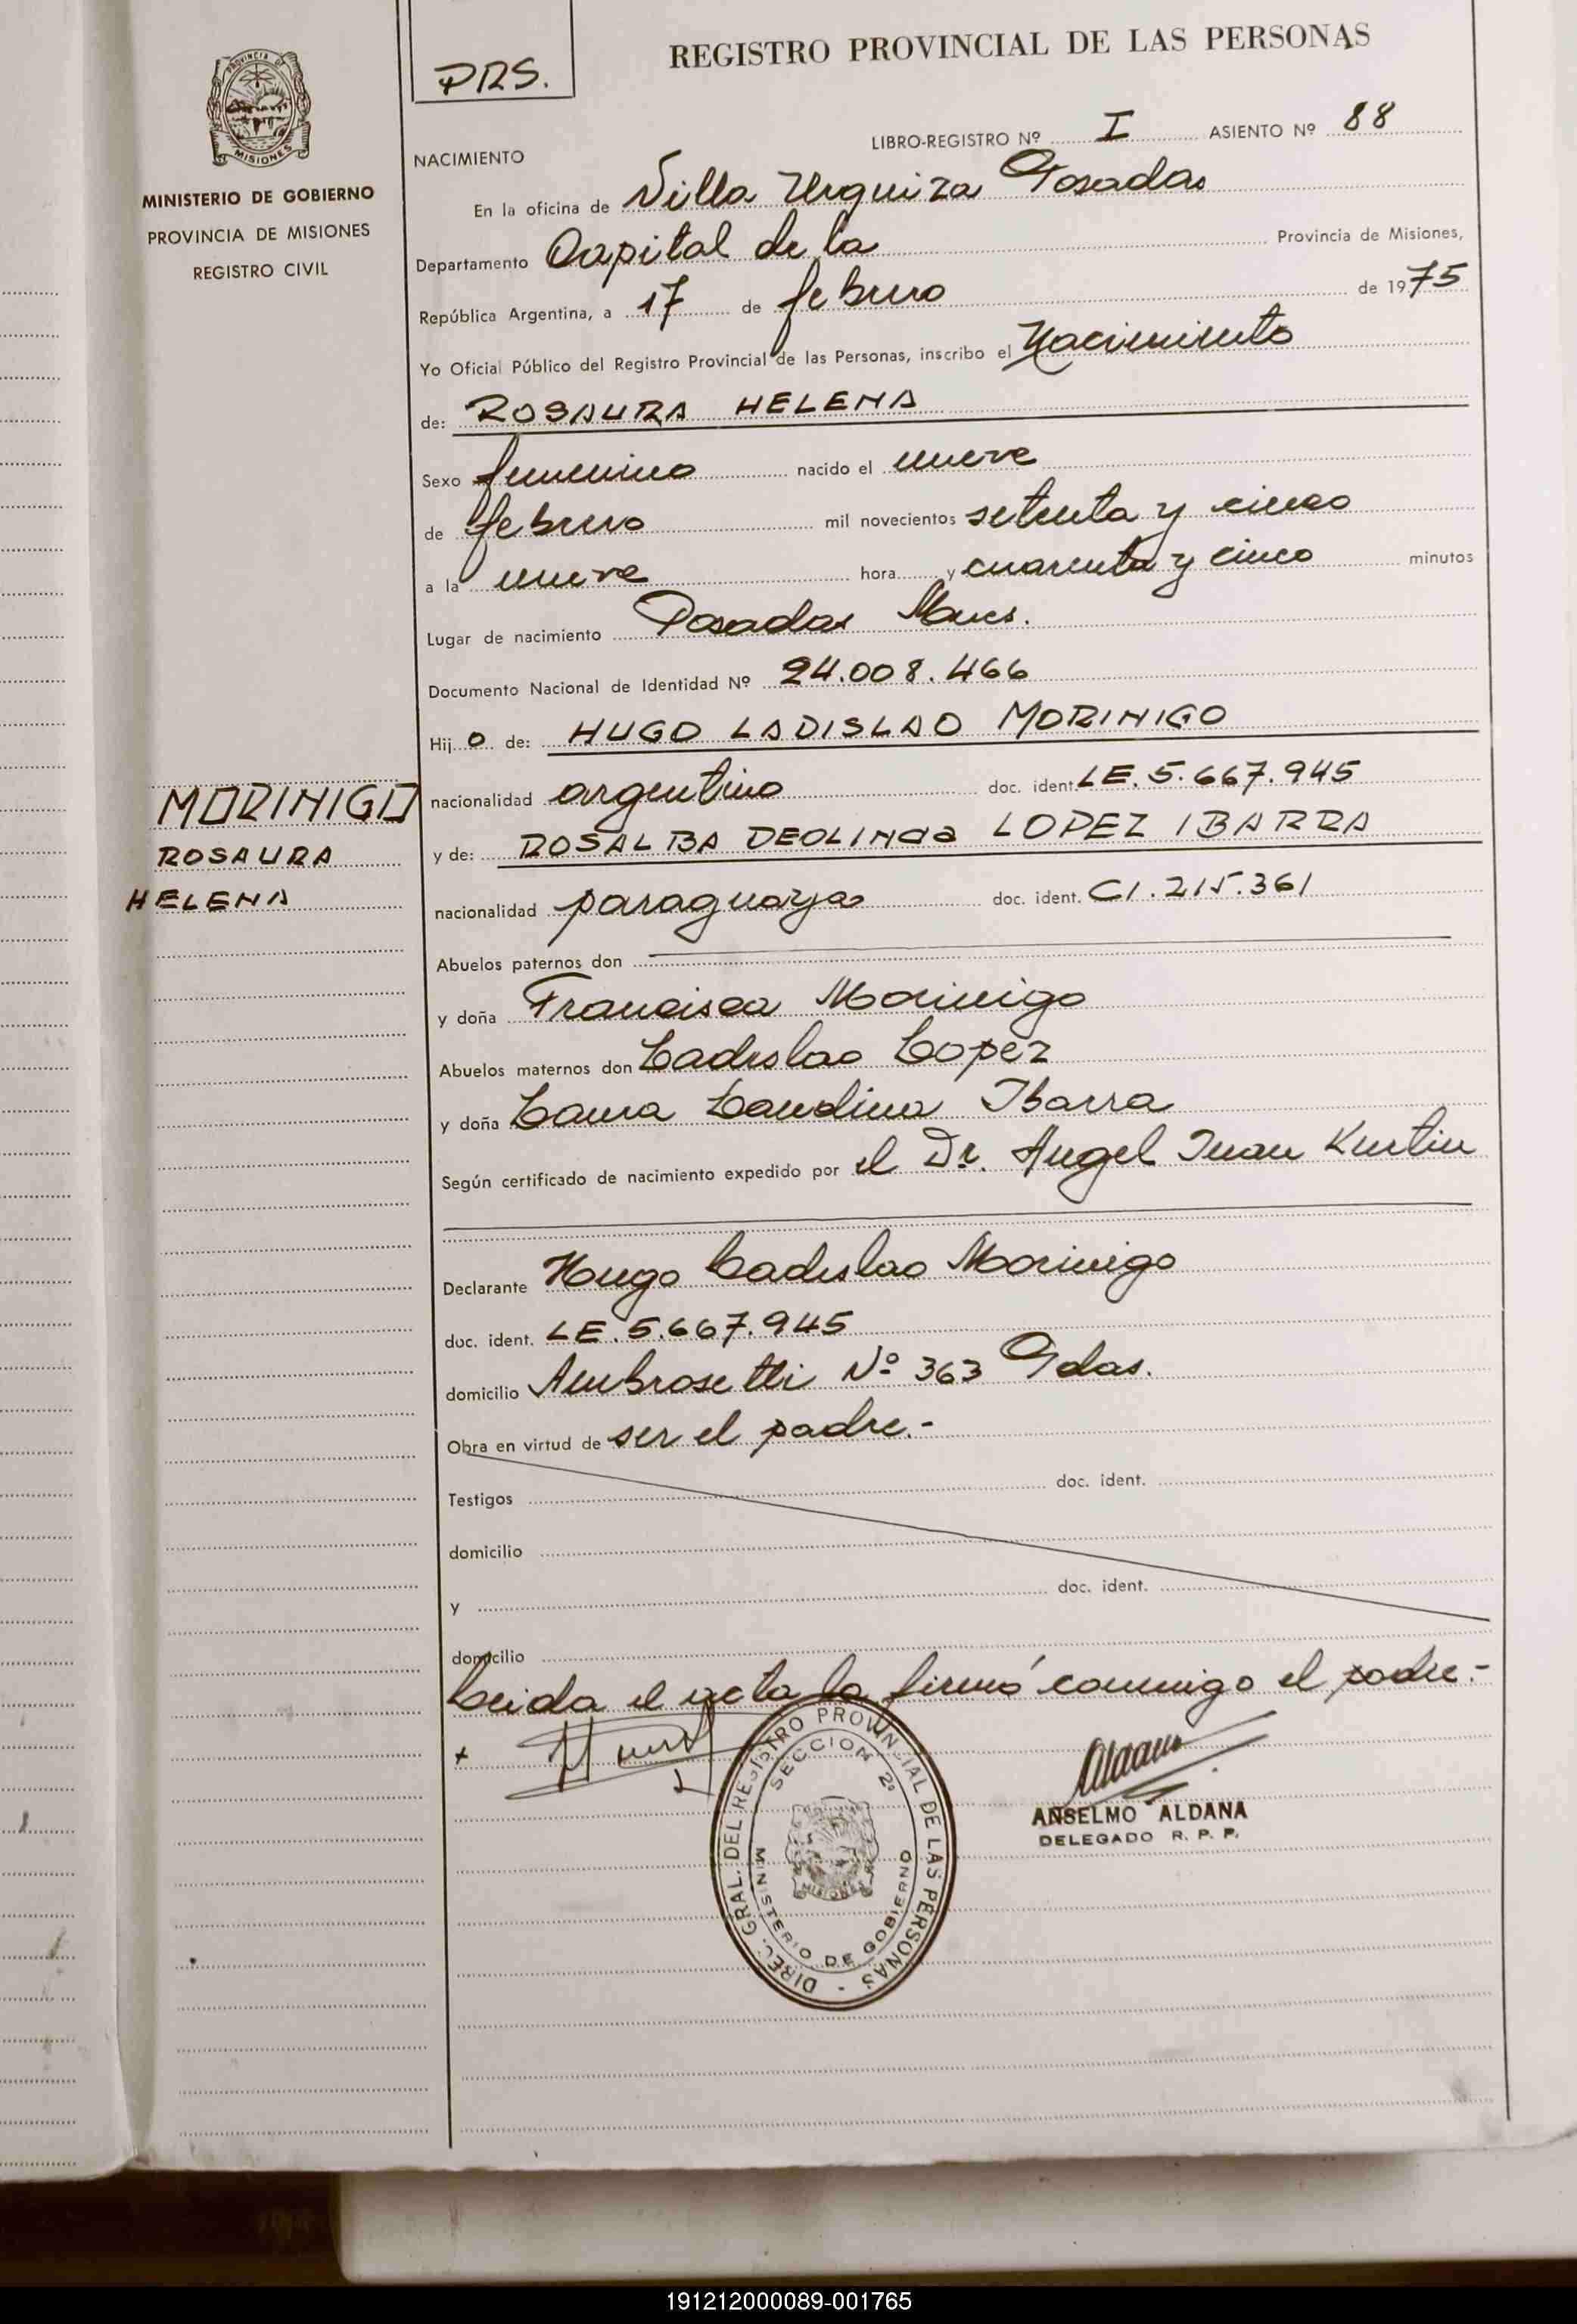 PROVINCIA DE
MISIONES
MINISTERIO DE GOBIERNO
PROVINCIA DE MISIONES
REGISTRO CIVIL
MORINIGO
ROSAURA
HELENA
PRS.
REGISTRO PROVINCIAL DE LAS PERSONAS
LIBRO-REGISTRO Nº I ASIENTO Nº 88
NACIMIENTO
En la oficina de Villa Urquiza Posadas
Departamento Capital de la Provincia de Misiones,
República Argentina, a 17 de febrero de 1975
Yo Oficial Público del Registro Provincial de las Personas, inscribo el Nacimiento
de: ROSAURA HELENA
Sexo femenino nacido el nueve
de febrero mil novecientos setenta y cinco
a la nueve hora y cuarenta y cinco minutos
Lugar de nacimiento Posadas Mnes.
Documento Nacional de Identidad Nº 24.008.466
Hij o de: HUGO LADISLAO MORINIGO
nacionalidad argentino doc. ident. LE. 5.667.945
y de: ROSALBA DEOLINda LOPEZ IBARRA
nacionalidad paraguaya doc. ident. CI. 215.361
Abuelos paternos don
y doña Francisca Morinigo
Abuelos maternos don Ladislao Lopez
y doña Laura Landina Ibarra
Según certificado de nacimiento expedido por el Dr. Angel Juan Kurtin
Declarante Hugo Ladislao Morinigo
doc. ident. LE. 5.667.945
domicilio Ambrosetti Nº 363 Pdas.
Obra en virtud de ser el padre.-
Testigos doc. ident.
domicilio
y doc. ident.
domicilio
Leida el acta la firmó conmigo el padre.-
DIREC. GRAL. DEL REGISTRO PROVINCIAL DE LAS PERSONAS -
SECCION 2º
MISIONES
MINISTERIO DE GOBIERNO
ANSELMO ALDANA
DELEGADO R. P. P.
191212000089-001765